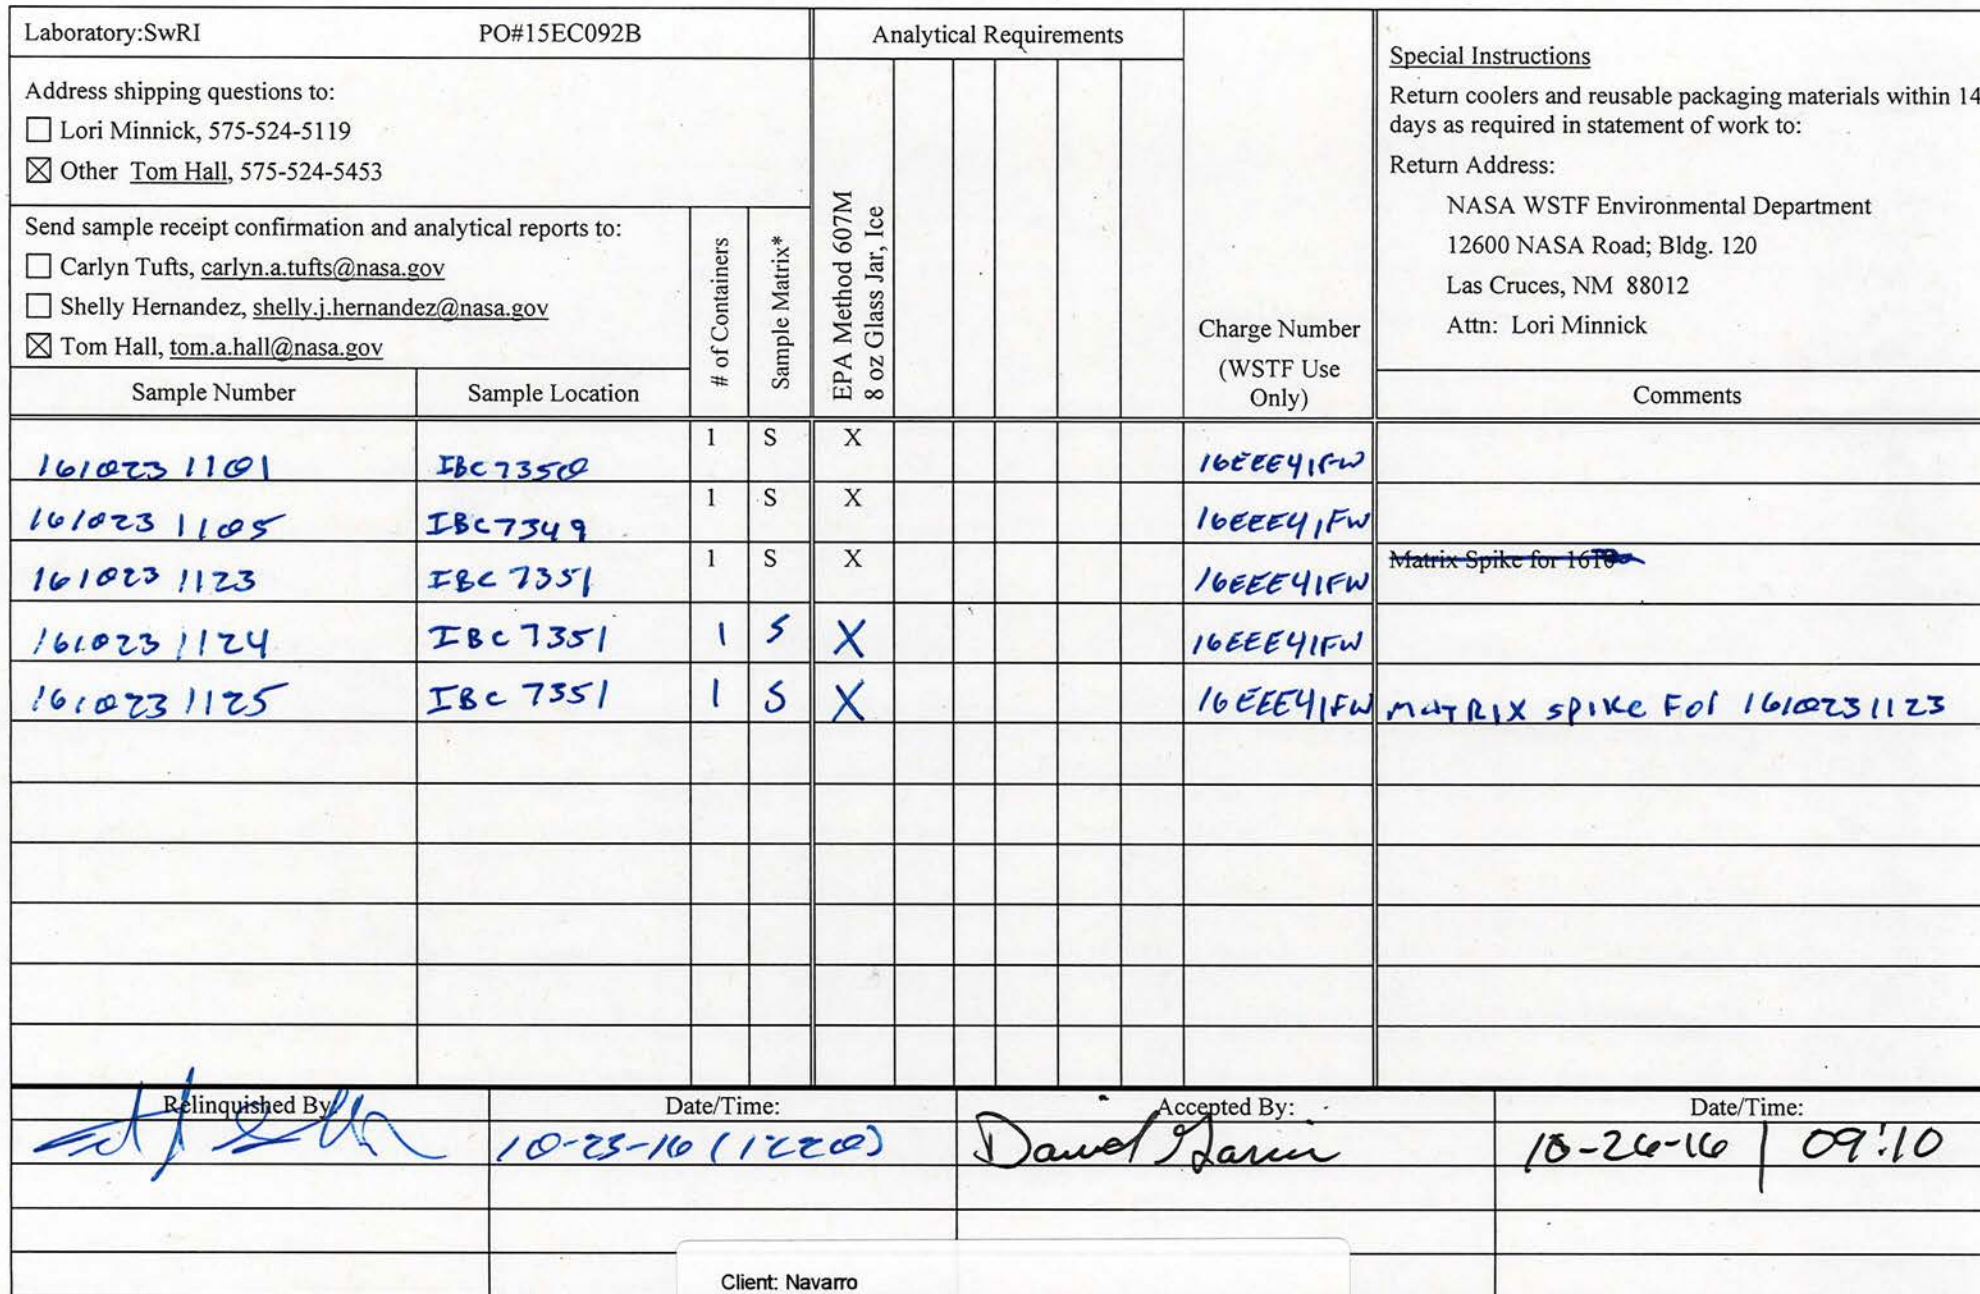 Laboratory:SwRI PO#15EC092B Analytical Requirements
Address shipping questions to:
☐ Lori Minnick, 575-524-5119
☒ Other Tom Hall, 575-524-5453
Send sample receipt confirmation and analytical reports to:
☐ Carlyn Tufts, carlyn.a.tufts@nasa.gov
☐ Shelly Hernandez, shelly.j.hernandez@nasa.gov
☒ Tom Hall, tom.a.hall@nasa.gov
Special Instructions
Return coolers and reusable packaging materials within 14
days as required in statement of work to:
Return Address:
NASA WSTF Environmental Department
12600 NASA Road; Bldg. 120
Las Cruces, NM 88012
Attn: Lori Minnick
Sample Number Sample Location
# of Containers
Sample Matrix*
EPA Method 607M
8 oz Glass Jar, Ice
Charge Number
(WSTF Use
Only)
Comments
1610231101 IBC7350 1 S X 16EEE41FW
1610231105 IBC7349 1 S X 16EEE41FW
1610231123 IBC 7351 1 S X 16EEE41FW Matrix Spike for 1610
1610231124 IBC 7351 1 S X 16EEE41FW
1610231125 IBC 7351 1 S X 16EEE41FW MATRIX SPIKE FOr 1610231123
Relinquished By Date/Time: Accepted By: Date/Time:
10-23-16 (1220) David 10-26-16 | 09:10
Client: Navarro